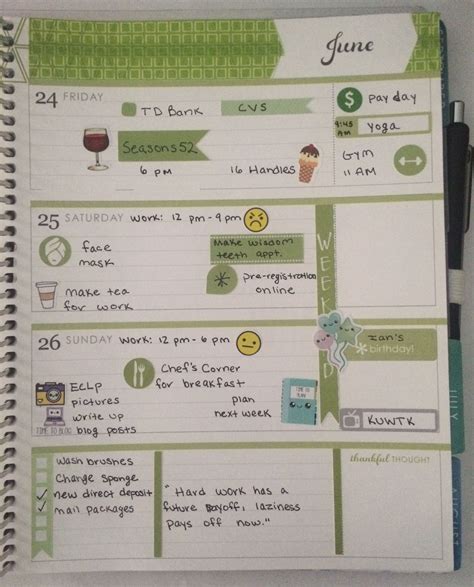 June
24 FRIDAY
TD Bank
CVS
Seasons 52
6 pm
16 Handles
$
pay day
9:45 AM
yoga
Gym
11 AM
25 SATURDAY
Work: 12 pm - 9 pm
face
mask
Make wisdom
teeth appt.
pre-registration
online
make tea
for work
WEEKEND
26 SUNDAY
Work: 12 pm - 6 pm
Chef's Corner
for breakfast
ECLP
pictures
write up
blog posts
TIME TO BLOG
plan
next week
TIME TO PLAN
Ian's
birthday!
KUWTK
JULY
wash brushes
Change sponge
new direct deposit
mail packages
"Hard work has a
future payoff, laziness
pays off now."
thankful THOUGHT
AUGUST